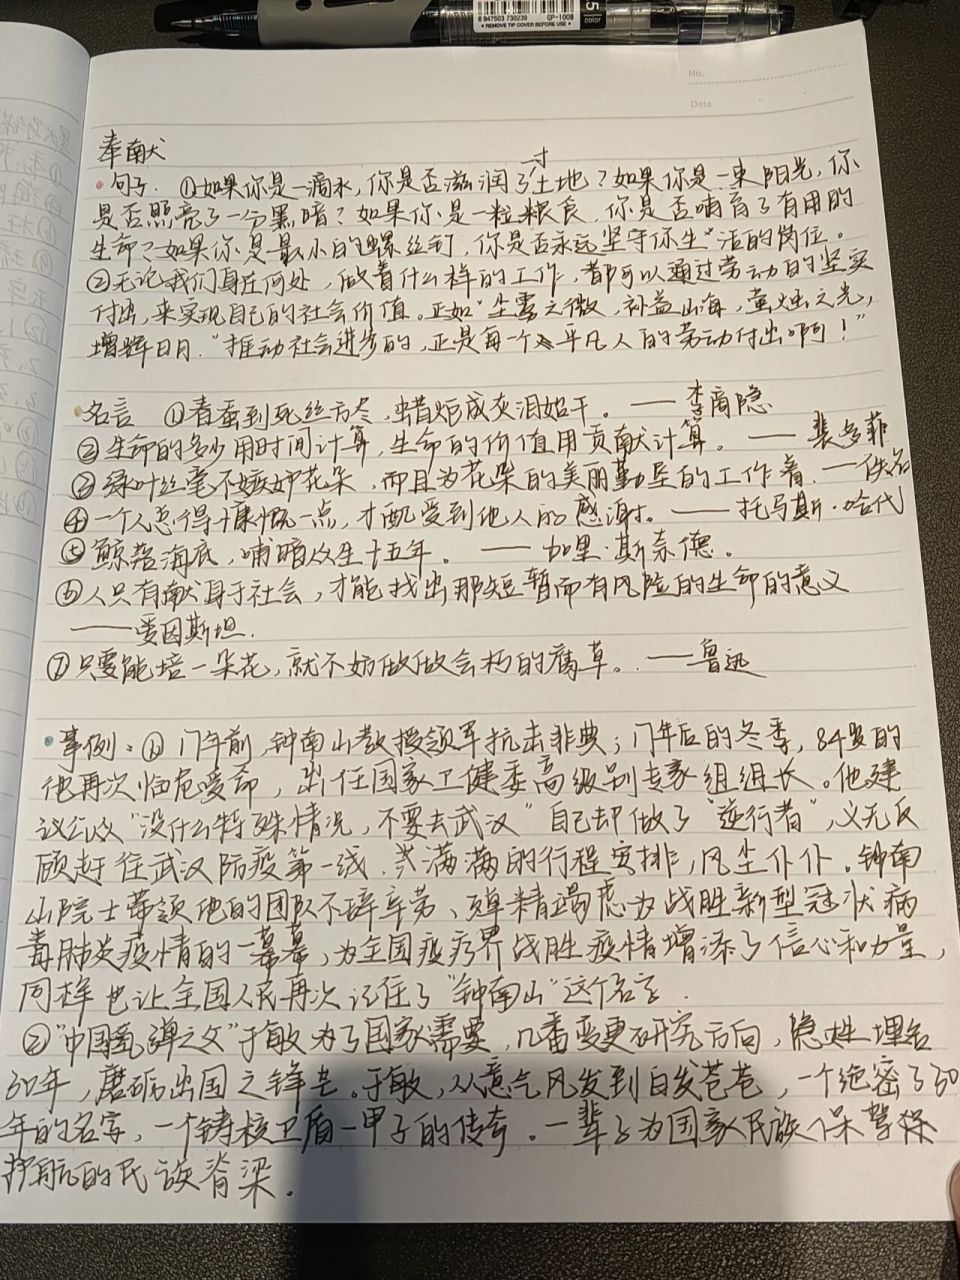 6 947503 730239
REMOVE TIP COVER BEFORE USE
GP-1008
5
color
No.
Data
奉献
句子. ①如果你是一滴水,你是否滋润了一寸土地?如果你是一束阳光,你
是否照亮了一分黑暗?如果你是一粒粮食,你是否哺育了有用的
生命?如果你是最小的螺丝钉,你是否永远坚守你生活的岗位。
②无论我们身在何处,做着什么样的工作,都可以通过劳动的坚实
付出,来实现自己的社会价值。正如“尘雾之微,补益山海,萤烛之光,
增辉日月.”推动社会进步的,正是每一个平凡人的劳动付出啊!”
名言 ①春蚕到死丝方尽,蜡炬成灰泪始干。——李商隐
②生命的多少用时间计算,生命的价值用贡献计算。——裴多菲
③绿叶丝毫不嫉妒花朵,而且为花朵的美丽勤是的工作着.——佚名
④一个人总得慷慨一点,才配受到他人的感谢。——托马斯·哈代
⑤鲸落海底,哺暗众生十五年。——加里·斯奈德。
⑥人只有献身于社会,才能找出那短暂而有风险的生命的意义
——爱因斯坦.
⑦只要能培一朵花,就不妨做做会朽的腐草。——鲁迅
事例:① 17年前,钟南山教授领军抗击非典;17年后的冬季,84岁的
他再次临危受命,出任国家卫健委高级别专家组组长。他建
议公众“没什么特殊情况,不要去武汉”自己却做了“逆行者”,义无反
顾赶往武汉防疫第一线.满满的行程安排,风尘仆仆.钟南
山院士带领他的团队不辞辛劳、殚精竭虑为战胜新型冠状病
毒肺炎疫情的一幕幕,为全国医疗界战胜疫情增添了信心和力量,
同样也让全国人民再次记住了“钟南山”这个名字.
②“中国氢弹之父”于敏为了国家需要,几番变更研究方向,隐姓埋名
30年,磨砺出国之锋芒.于敏,从意气风发到白发苍苍,一个绝密了30
年的名字,一个铸核卫盾一甲子的传奇。一辈子为国家民族保驾
护航的民族脊梁.